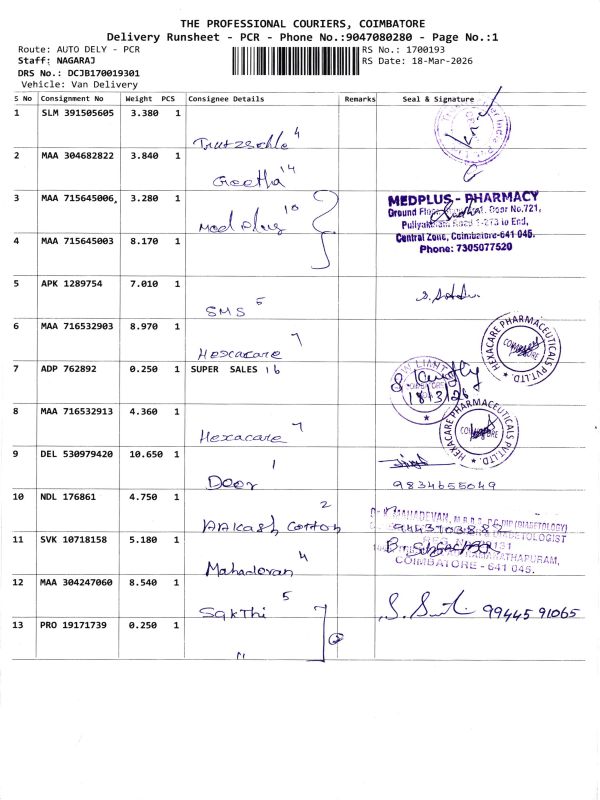 THE PROFESSIONAL COURIERS, COIMBATORE
Delivery Runsheet - PCR - Phone No.:9047080280 - Page No.:1
Route: AUTO DELY - PCR
RS No.: 1700193
Staff: NAGARAJ
RS Date: 18-Mar-2026
DRS No.: DCJB170019301
Vehicle: Van Delivery
S No Consignment No Weight PCS Consignee Details Remarks Seal & Signature
1 SLM 391505605 3.380 1
4
2 MAA 304682822 3.840 1
Geetha 14
3 MAA 715645006 3.280 1
Med Plus 10
MEDPLUS - PHARMACY
Door No.721,
to End,
Central Zone, Coimbatore-641 045.
Phone: 7305077520
4 MAA 715645003 8.170 1
5 APK 1289754 7.010 1
SMS 5
6 MAA 716532903 8.970 1
Hexacare 7
HEXACARE PHARMACEUTICALS PVT.LTD.
7 ADP 762892 0.250 1 SUPER SALES 16
18/3/26
8 MAA 716532913 4.360 1
Hexacare 7
HEXACARE PHARMACEUTICALS PVT.LTD.
9 DEL 530979420 10.650 1
Door 1
9834655049
10 NDL 176861 4.750 1
Aakash Cotton 2
MAHADEVAN, M.B.B.S.
(DIABETOLOGY)
11 SVK 10718158 5.180 1
Mahadevan 4
COIMBATORE - 641 045.
12 MAA 304247060 8.540 1
Sakthi 5
99445 91065
13 PRO 19171739 0.250 1
"